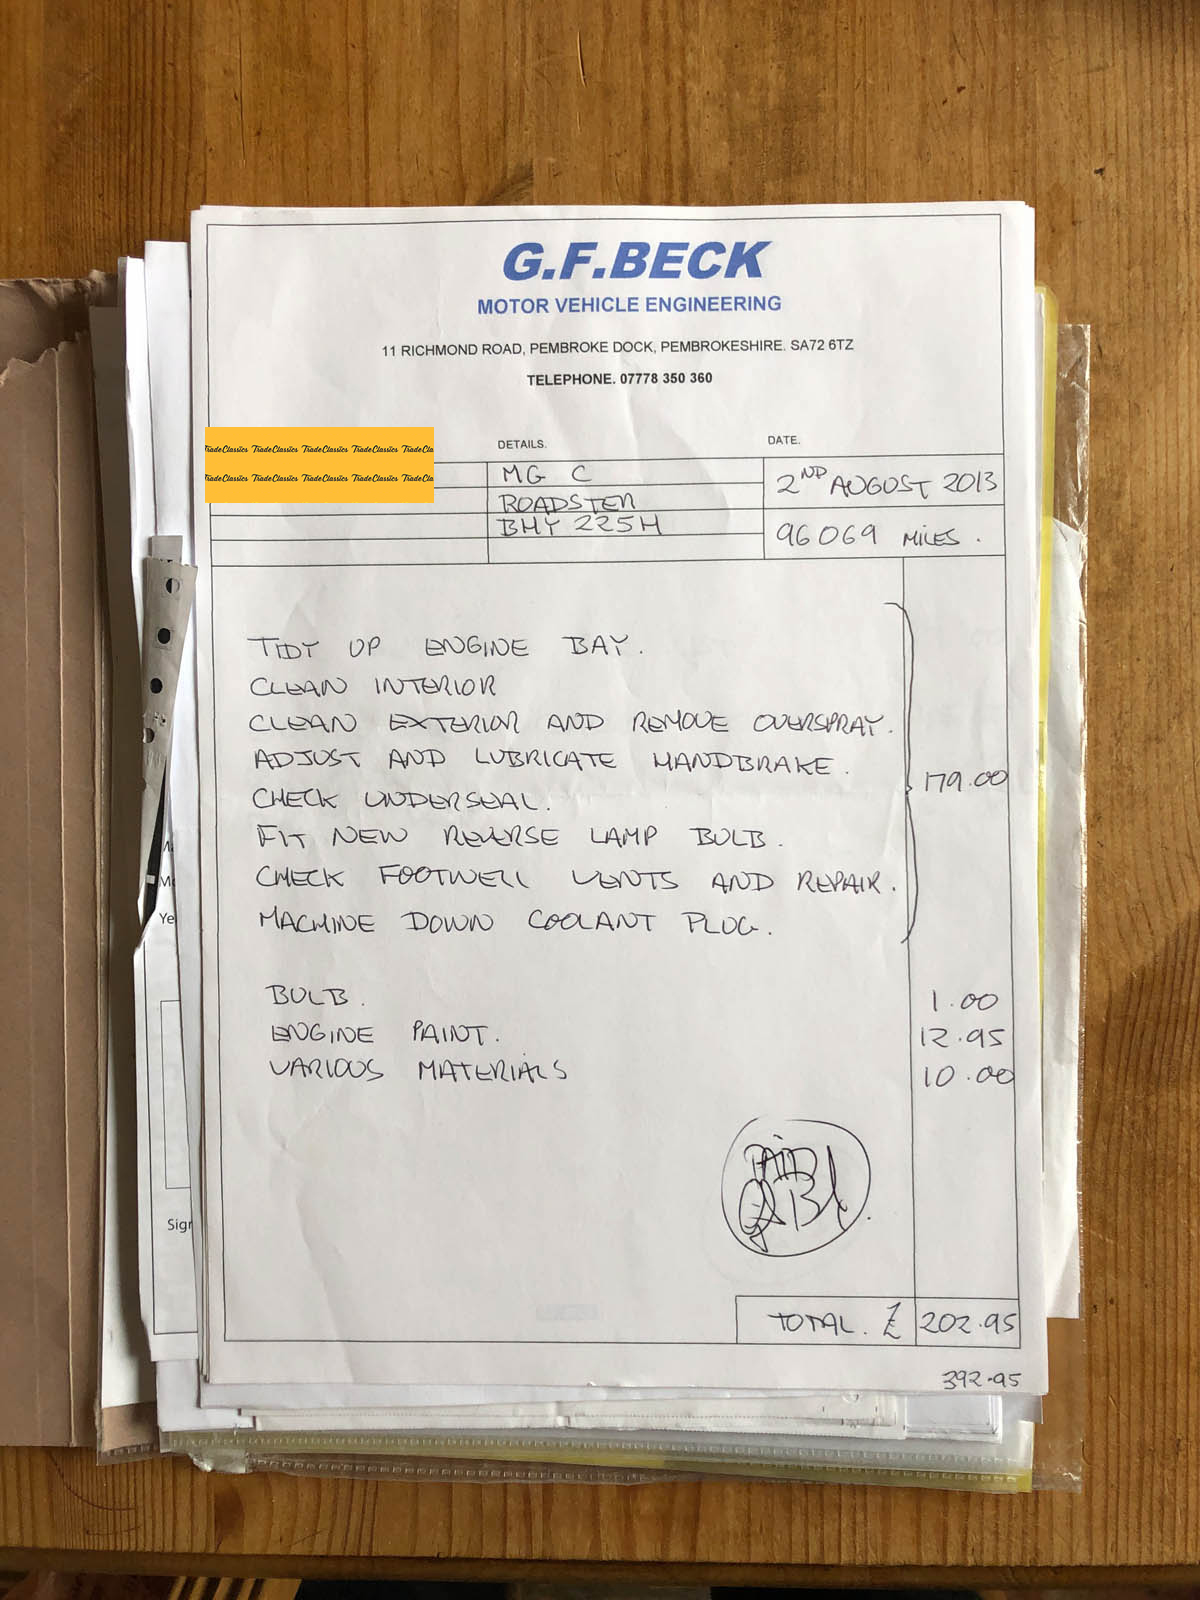 G.F.BECK
MOTOR VEHICLE ENGINEERING
11 RICHMOND ROAD, PEMBROKE DOCK, PEMBROKESHIRE. SA72 6TZ
TELEPHONE. 07778 350 360
DETAILS.
DATE.
TradeClassics TradeClassics TradeClassics TradeClassics TradeCla
TradeClassics TradeClassics TradeClassics TradeClassics TradeCla
MG C
ROADSTER
BHY 225H
2ND AUGUST 2013
96069 MILES.
TIDY UP ENGINE BAY.
CLEAN INTERIOR
CLEAN EXTERIOR AND REMOVE OVERSPRAY.
ADJUST AND LUBRICATE HANDBRAKE.
CHECK UNDERSEAL.
FIT NEW REVERSE LAMP BULB.
CHECK FOOTWELL VENTS AND REPAIR.
MACHINE DOWN COOLANT PLUG.
179.00
BULB. 1.00
ENGINE PAINT. 12.95
VARIOUS MATERIALS 10.00
PAID
TOTAL. £ 202.95
392.95
Ye
Sign